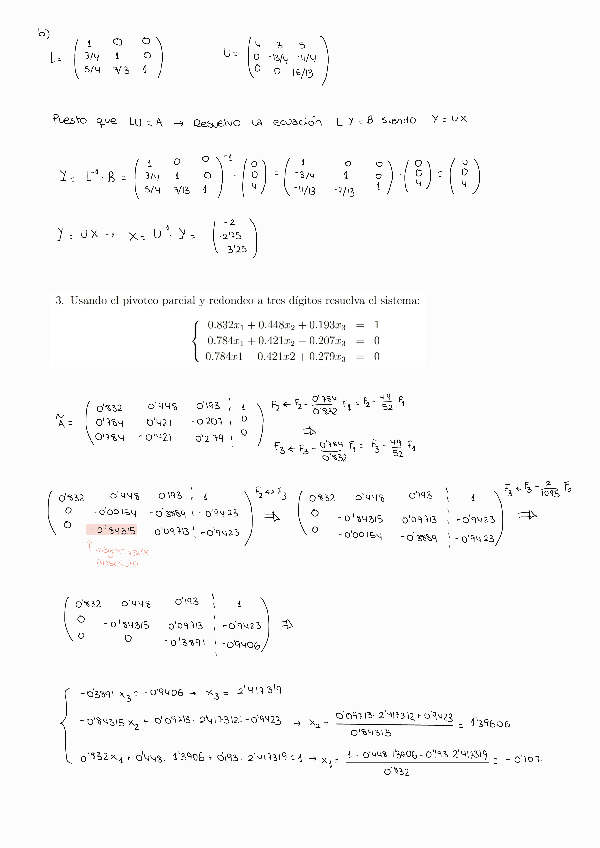 b)
L = ( 1 0 0 ; 3/4 1 0 ; 5/4 7/3 1 ) U = ( 4 3 5 ; 0 -13/4 -11/4 ; 0 0 16/13 )
Puesto que LU = A → Resuelvo la ecuación LY = B siendo Y = UX
Y = L⁻¹ · B = ( 1 0 0 ; 3/4 1 0 ; 5/4 7/13 1 )⁻¹ · ( 0 ; 0 ; 4 ) = ( 1 0 0 ; -3/4 1 0 ; -11/13 -7/13 1 ) · ( 0 ; 0 ; 4 ) = ( 0 ; 0 ; 4 )
Y = UX → X = U⁻¹ · Y = ( -2 ; -2'75 ; 3'25 )
3. Usando el pivoteo parcial y redondeo a tres dígitos resuelva el sistema:
0.832x1 + 0.448x2 + 0.193x3 = 1
0.784x1 + 0.421x2 − 0.207x3 = 0
0.784x1 − 0.421x2 + 0.279x3 = 0
Ã = ( 0'832 0'448 0'193 | 1 ; 0'784 0'421 -0'207 | 0 ; 0'784 -0'421 0'279 | 0 ) F2 ← F2 - 0'784/0'832 F1 = F2 - 49/52 F1 ⇒ F3 ← F3 - 0'784/0'832 F1 = F3 - 49/52 F1
( 0'832 0'448 0'193 | 1 ; 0 -0'00154 -0'3889 | -0'9423 ; 0 -0'84315 0'09713 | -0'9423 ) F2 ↔ F3 ⇒ ( 0'832 0'448 0'193 | 1 ; 0 -0'84315 0'09713 | -0'9423 ; 0 -0'00154 -0'3889 | -0'9423 ) F3 ← F3 - 2/1095 F2 ⇒
↑ mayor valor
absoluto
( 0'832 0'448 0'193 | 1 ; 0 -0'84315 0'09713 | -0'9423 ; 0 0 -0'3891 | -0'9406 ) ⇒
-0'3891 x3 = -0'9406 → x3 = 2'417319
-0'84315 x2 + 0'09713 · 2'417312 = -0'9423 → x2 = 0'09713 · 2'417312 + 0'9423 / 0'84315 = 1'39606
0'832 x1 + 0'448 · 1'3906 + 0'193 · 2'417319 = 1 → x1 = 1 - 0'448 · 1'3906 - 0'193 · 2'417319 / 0'832 = -0'107